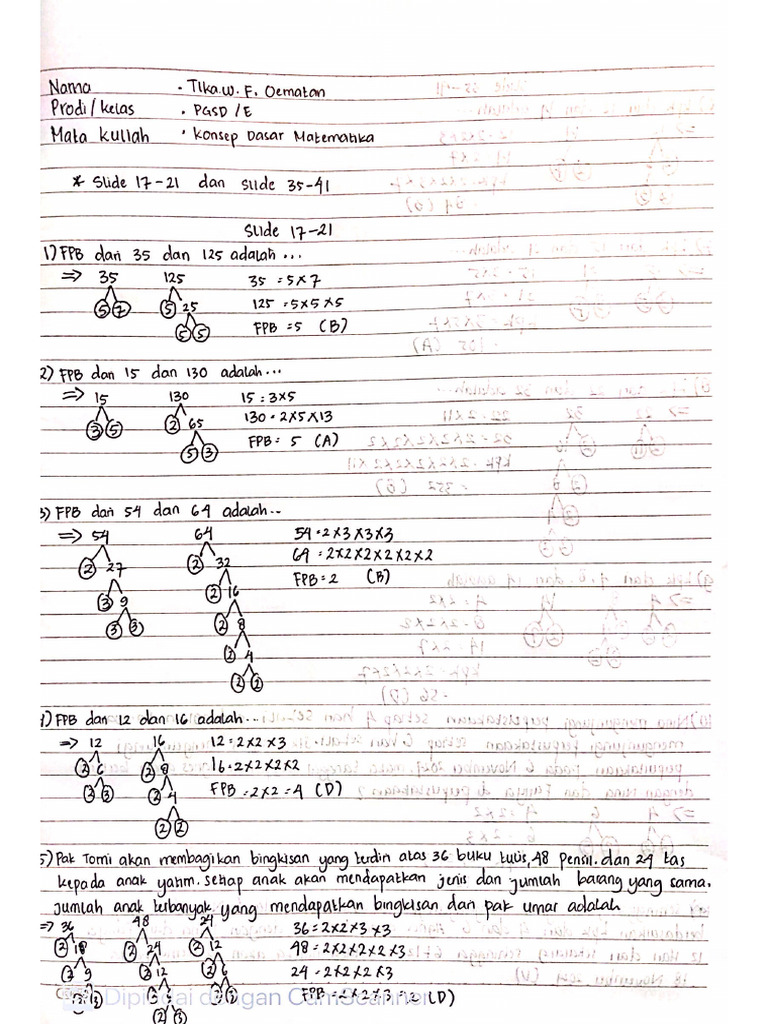 Nama . Tika.W.F. Oematan
Prodi/kelas . PGSD/E
Mata kuliah . Konsep Dasar Matematika
* Slide 17-21 dan slide 35-41
Slide 17-21
1) FPB dari 35 dan 125 adalah...
=> 35 125 35 = 5x7
5 7 5 25 125 = 5x5x5
5 5 FPB = 5 (B)
2) FPB dari 15 dan 130 adalah...
=> 15 130 15 : 3x5
3 5 2 65 130 = 2x5x13
5 3 FPB = 5 (A)
3) FPB dari 54 dan 64 adalah..
=> 54 64 54 = 2x3x3x3
2 27 2 32 64 = 2x2x2x2x2x2
3 9 2 16 FPB = 2 (B)
3 3 2 8
2 4
2 2
4) FPB dari 12 dan 16 adalah...
=> 12 16 12 = 2x2x3
2 6 2 8 16 = 2x2x2x2
2 3 2 4 FPB = 2x2 = 4 (D)
2 2
5) Pak Tomi akan membagikan bingkisan yang terdiri atas 36 buku tulis, 48 pensil. dan 24 tas
kepada anak yatim. setiap anak akan mendapatkan jenis dan jumlah barang yang sama.
jumlah anak terbanyak yang mendapatkan bingkisan dari pak umar adalah
=> 36 48 24 36 = 2x2x3x3
2 18 2 24 2 12 48 = 2x2x2x2x3
2 9 2 12 2 6 24 = 2x2x2x3
FPB = 2x2x3 = 2 (D)
Dipindai dengan CamScanner